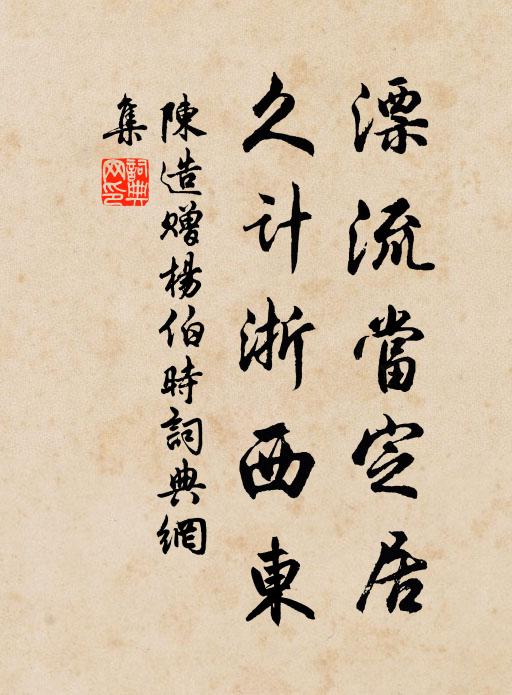 漂流當定居
久计浙西東
陳造贈楊伯時詞典網
集
詞典網印